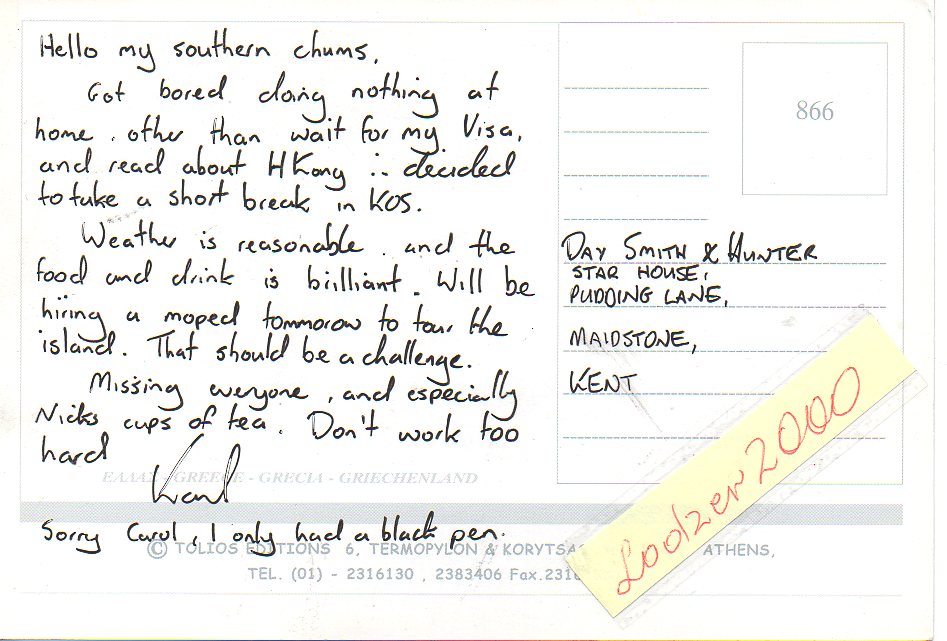 Hello my southern chums,
Got bored doing nothing at
home, other than wait for my Visa,
and read about HKong ∴ decided
to take a short break in KOS.
Weather is reasonable, and the
food and drink is brilliant. Will be
hiring a moped tommorow to tour the
island. That should be a challenge.
Missing everyone, and especially
Nicks cups of tea. Don't work too
hard
Karl
Sorry Carol, I only had a black pen.
ΕΛΛΑΣ - GREECE - GRECIA - GRIECHENLAND
© TOLIOS EDITIONS 6, TERMOPYLON & KORYTSA ATHENS,
TEL. (01) - 2316130 , 2383406 Fax.231
866
DAY SMITH & HUNTER
STAR HOUSE,
PUDDING LANE,
MAIDSTONE,
KENT
Lodzer2000